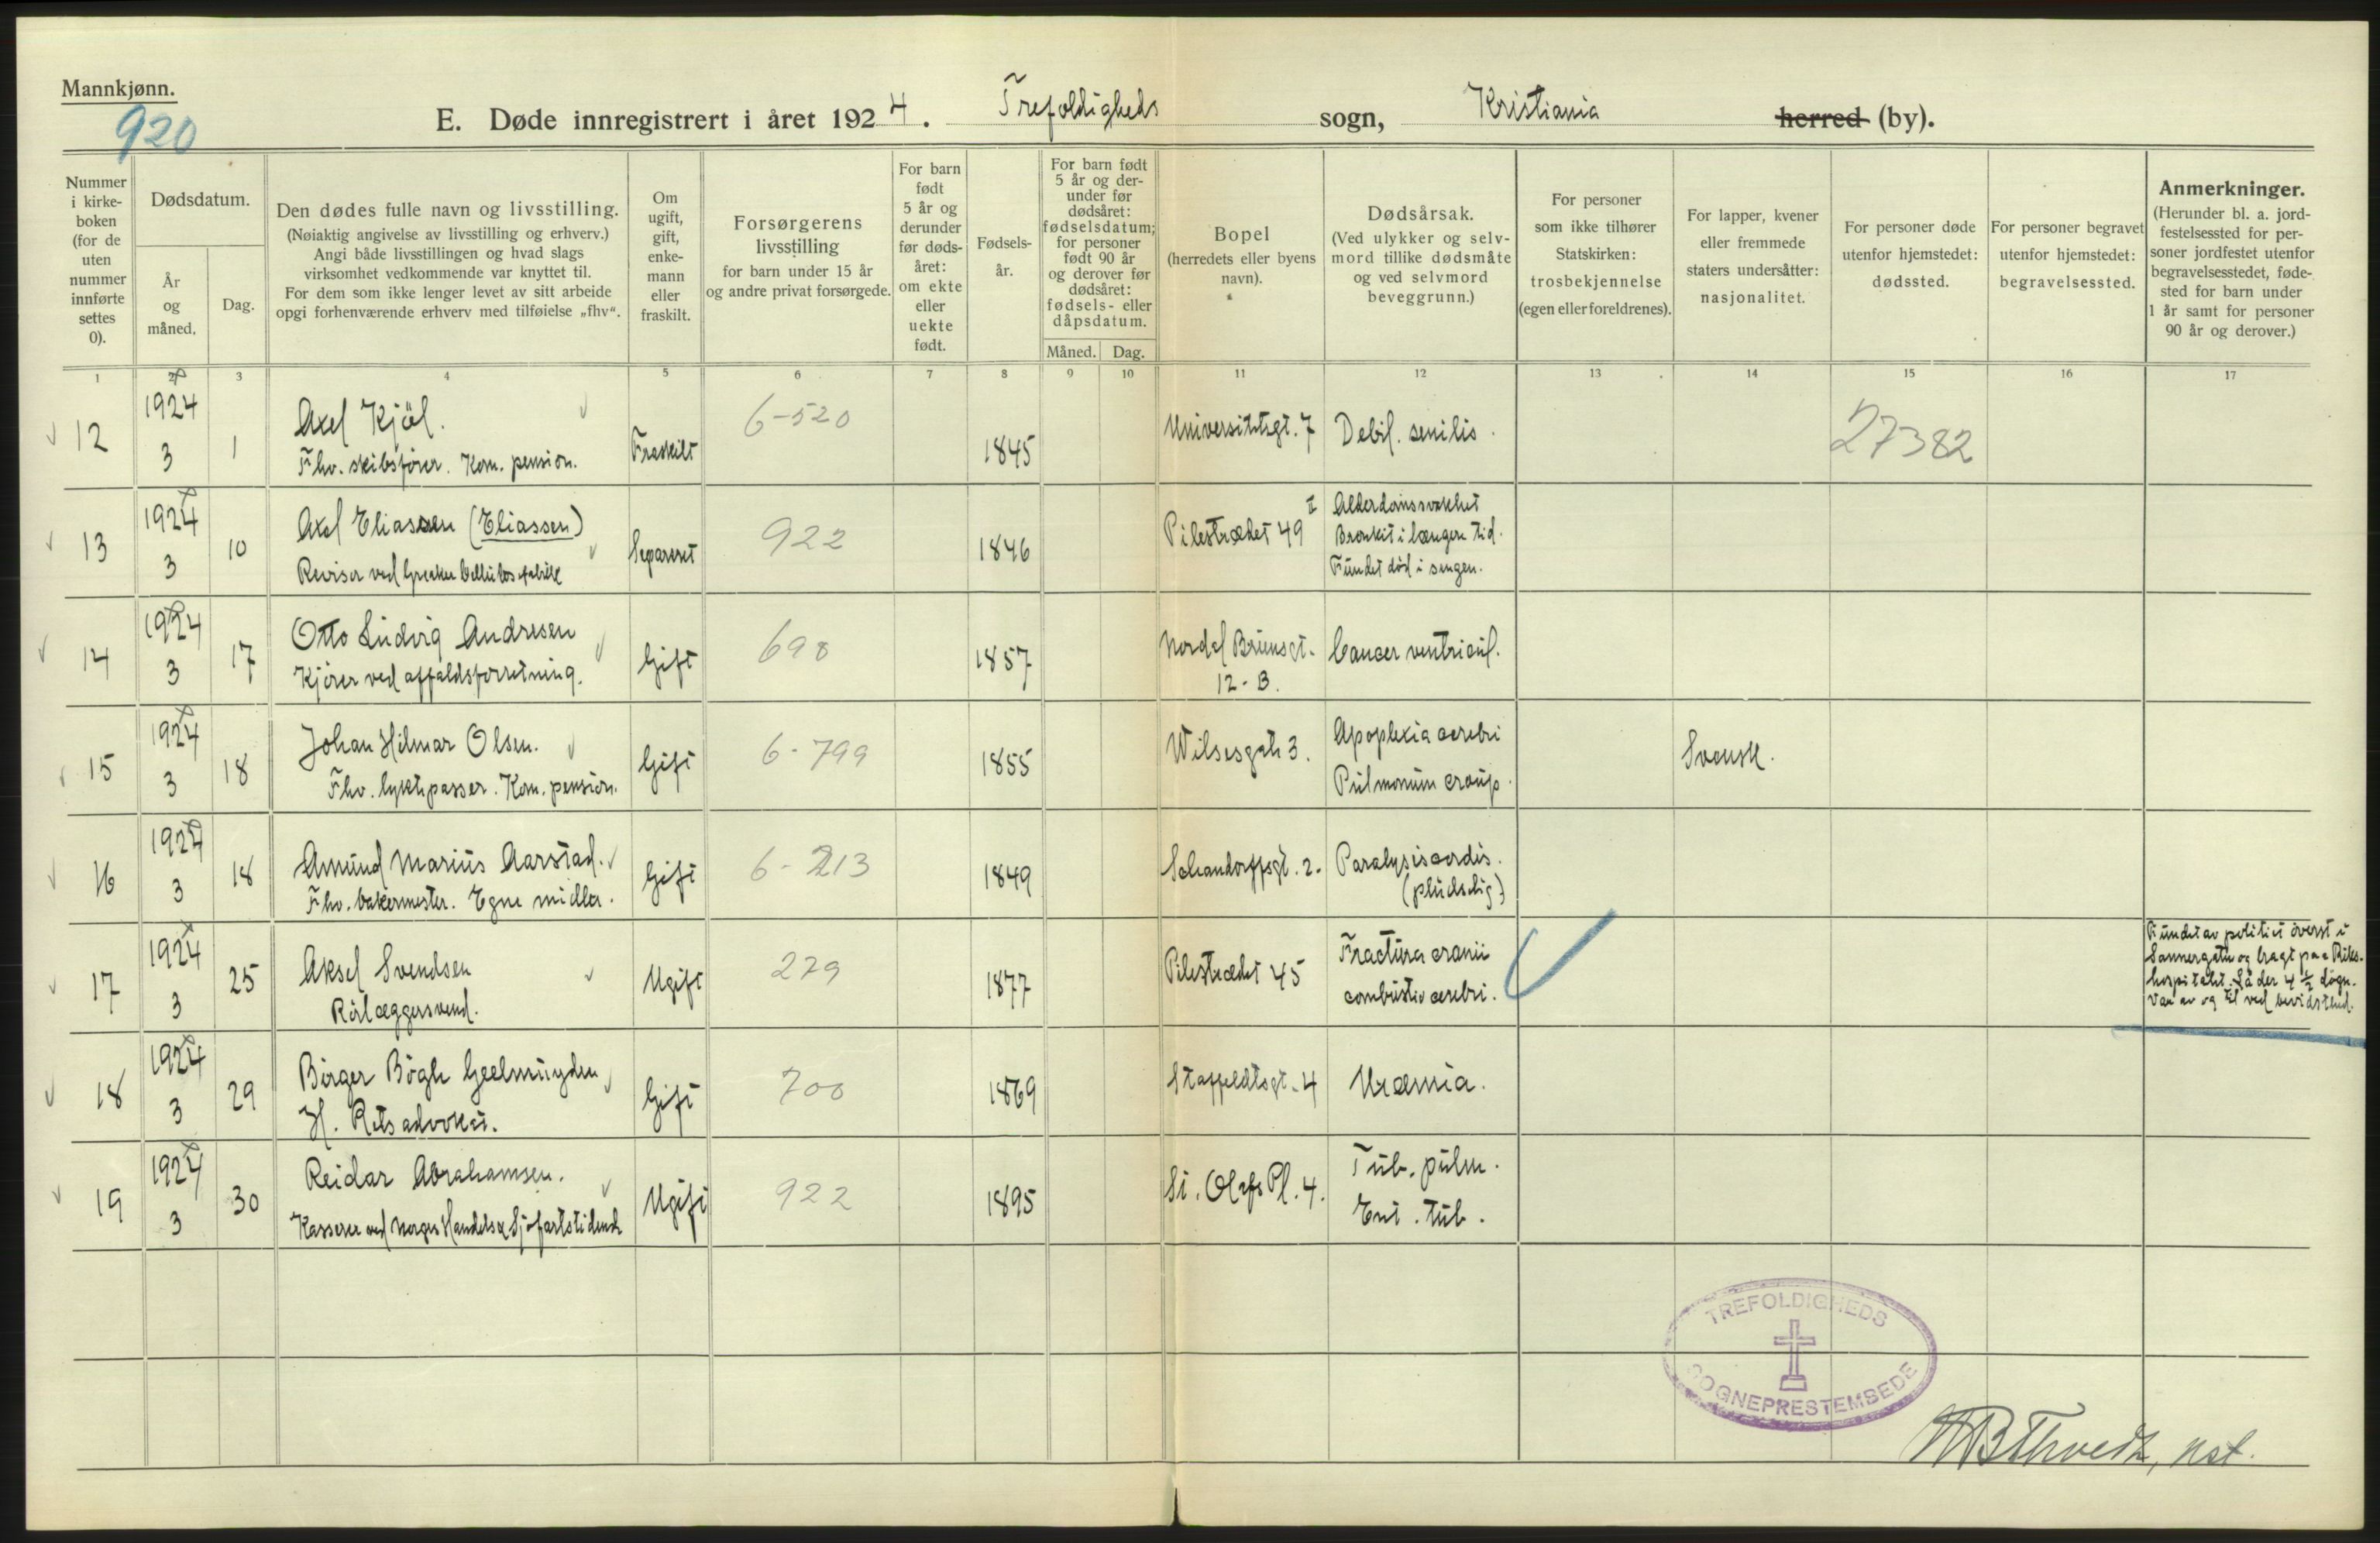 Mannkjønn.
920
E. Døde innregistrert i året 1924. Trefoldigheds sogn, Kristiania herred (by).
Nummer i kirke-boken (for de uten nummer innførte settes 0).
Dødsdatum.
År og måned.
Dag.
Den dødes fulle navn og livsstilling.
(Nøiaktig angivelse av livsstilling og erhverv.)
Angi både livsstillingen og hvad slags
virksomhet vedkommende var knyttet til.
For dem som ikke lenger levet av sitt arbeide
opgi forhenværende erhverv med tilføielse „fhv“.
Om ugift, gift, enke-mann eller fraskilt.
Forsørgerens
livsstilling
for barn under 15 år
og andre privat forsørgede.
For barn født 5 år og derunder før døds-året: om ekte eller uekte født.
Fødsels-år.
For barn født 5 år og der-under før dødsåret: fødselsdatum; for personer født 90 år og derover før dødsåret: fødsels- eller dåpsdatum.
Måned. Dag.
Bopel
(herredets eller byens
navn).
Dødsårsak.
(Ved ulykker og selv-
mord tillike dødsmåte
og ved selvmord
beveggrunn.)
For personer
som ikke tilhører
Statskirken:
trosbekjennelse
(egen eller foreldrenes).
For lapper, kvener
eller fremmede
staters undersåtter:
nasjonalitet.
For personer døde
utenfor hjemstedet:
dødssted.
For personer begravet
utenfor hjemstedet:
begravelsessted.
Anmerkninger.
(Herunder bl. a. jord-
festelsessted for per-
soner jordfestet utenfor
begravelsesstedet, føde-
sted for barn under
1 år samt for personer
90 år og derover.)
1 2 3 4 5 6 7 8 9 10 11 12 13 14 15 16 17
12 1924 3 1 Axel Kjöl. Fraskilt 6-520 1845 Universitetsgt. 7 Debil. senilis. 27382
Fhv. skibsfører. Kom. pension.
13 1924 3 10 Axel Eliassen (Eliassen) Separeret 922 1846 Pilestrædet 49 II Alderdomssvakhet
Bronkit i længere tid.
Fundet död i sengen.
Revisor ved Greaker Cellulosefabrik
14 1924 3 17 Otto Ludvig Andresen Gift 698 1857 Nordal Brunsgt. 12-B. Cancer ventricul.
Kjörer ved affaldsforretning.
15 1924 3 18 Johan Hilmar Olsen. Gift 6-799 1855 Wilsesgate 3. Apoplexia cerebri Svensk.
Pulmonum croup.
Fhv. lyktepasser. Kom. pension.
16 1924 3 18 Amund Marius Aarstad. Gift 6-213 1849 Schandorffsgt. 2. Paralysis cordis.
(pludselig)
Fhv. bakermester. Egne midler.
17 1924 3 25 Aksel Svendsen Ugift 279 1877 Pilestrædet 45 Fractura cranii
combustio cerebri.
Rörlæggersvend.
Fundet av politiet överst i
Sannergaten og bragt paa Riks-
hospitalet. Lå der 4 ½ dögn.
Var av og til ved bevidsthed.
18 1924 3 29 Birger Bögh Geelmuyden Gift 700 1869 Staffeldtsgt. 4 Uræmia.
H. Retsadvokat.
19 1924 3 30 Reidar Abrahamsen. Ugift 922 1895 St. Olafs Pl. 4. Tub. pulm.
Ent. tub.
Kasserer ved Norges Handels & Sjöfartstidende
TREFOLDIGHEDS
SOGNEPRESTEMBEDE